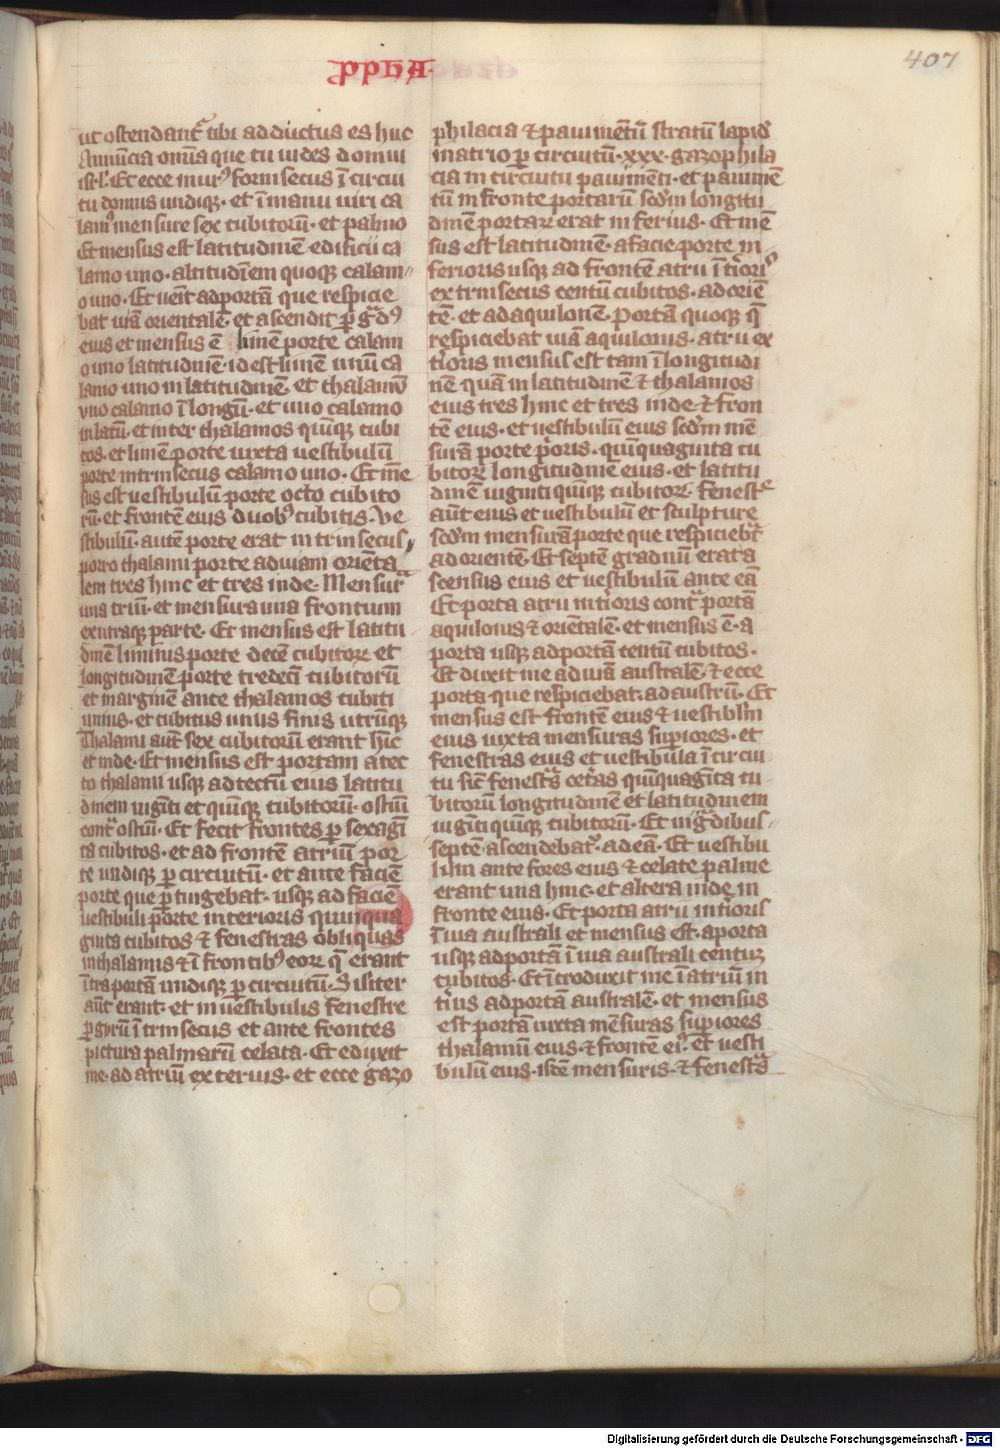 pphA
407
ut ostendant᷑ tibi adductus es huc
Annuncia omīa que tu uides domui
isrl᷑. Et ecce mur⁹ forinsecus ī circui
tu domus undiqꝫ· et ī manu uiri ca
lam⁹ mensure sex cubitorū· et palmo
Et mensus est latitudinē edificii ca
lamo uno· altitudinem quoqꝫ calam⸗
o uno· Et uēit ad portā que respicie
bat uiā orientalē· et ascendit ꝑ gᷓd⁹
eius et mensus ē limen porte calam
o uno latitudinē· id est limē unū ca
lamo uno in latitudinē· et thalamū
vno calamo ī longū· et uno calamo
in latū· et inter thalamos quīqꝫ cubi
tos· et limen porte iuxta uestibulū
porte intrinsecus calamo uno· Et mē
sus est uestibulū porte octo cubito
rū· et frontē eius duob⁹ cubitis· Ve
stibulū· autē porte erat intrinsecus,
porro thalami porte ad uiam orienta
lem tres hinc et tres inde· Mensurᷓ
una triū· et mensura una frontium
ex utraqꝫ parte· Et mensus est latitu
dinē liminis porte decē cubitoꝝ et
longitudinē porte tredecī cubitorū
et marginē ante thalamos cubiti
unius· et cubitus unus finis utrūqꝫ
Thalami aūt sex cubitorū erant hīc
et inde· Et mensus est portam a tec
to thalami usqꝫ ad tectū eius latitu
dinem uigīti et quīqꝫ cubitorū· ostiū
contᷓ ostiū· Et fecit frontes ꝑ sexagī
ta cubitos· et ad frontē atriū por
te undiqꝫ ꝑ circuitū· et ante faciē
porte que ꝑtingebat· usqꝫ ad faciē
uestibuli porte interioris quinqua
ginta cubitos ⁊ fenestras obliquas
in thalamis ⁊ ī frontib⁹ eoꝝ q̄ erant
ītra portā undiqꝫ ꝑ circuitū· Similiter
aūt erant· et in uestibulis fenestre
ꝑ gyrū ītrinsecus et ante frontes
pictura palmarū celata· Et eduxit
me· ad atriū exterius· et ecce gazo
philacia ⁊ pauimētū stratū lapid᷑
in atrio ꝑ circuitū· xxx· gazophila
cia in circuitu pauimēti· et pauimē
tū in fronte portarū scd᷑m longitu
dinē portaꝝ erat inferius· Et mē
sus est latitudinē· a facie porte in
ferioris usqꝫ ad frontē atrii īt᷑iori⁹
extrinsecus centū cubitos· ad oriē
tē· et ad aquilonē· Portā quoqꝫ q̄
respiciebat uiā aquilonis· atrii ex
t᷑ioris mensus est tam ī longitudi
nē quā in latitudinē ⁊ thalamos
eius tres hinc et tres inde· ⁊ fron
tē eius· et uestibulū eius scd᷑m mē
surā porte p᷑oris· quīquaginta cu
bitoꝝ longitudinē eius· et latitu
dinē uiginti quīqꝫ cubitoꝝ· Fenestᵉ
aūt eius et uestibulū et sculpture
scd᷑m mensurā porte que respiciebᷓt
ad orientē· Et septē graduū erat a
scensus eius et uestibulū ante eā
Et porta atrii int᷑ioris contᷓ portā
aquilonis ⁊ orientalē· et mensus ē· a
porta usqꝫ ad portā centū cubitos·
Et duxit me ad uiā australē· ⁊ ecce
porta que respiciebat· ad austrū· Et
mensus est frontē eius ⁊ uestiblm̄
eius iuxta mensuras supiores· et
fenestras eius et uestibula ī circui
tu sic̄ fenestᷓs cet᷑as quīquagīta cu
bitorū longitudinē et latitudinem
uigīti quīqꝫ cubitorū· Et in gᷓdibus⸗
septē ascendebat᷑· ad eā· Et uestibu
lūm ante fores eius ⁊ celate palme
erant una hinc· et altera inde in
fronte eius· Et porta atrii int᷑ioris
ī uia australi et mensus est· a porta
usqꝫ ad portā ī uia australi centuꝫ
cubitos· Et ītroduxit me ī atriū in
t᷑ius ad portā australē· et mensus
est portā iuxta mēsuras supiores
thalamū eius· ⁊ frontē ei⁹· et uesti
bulū eius· isdē mensuris· ⁊ fenestᷓs
Digitalisierung gefördert durch die Deutsche Forschungsgemeinschaft - DFG